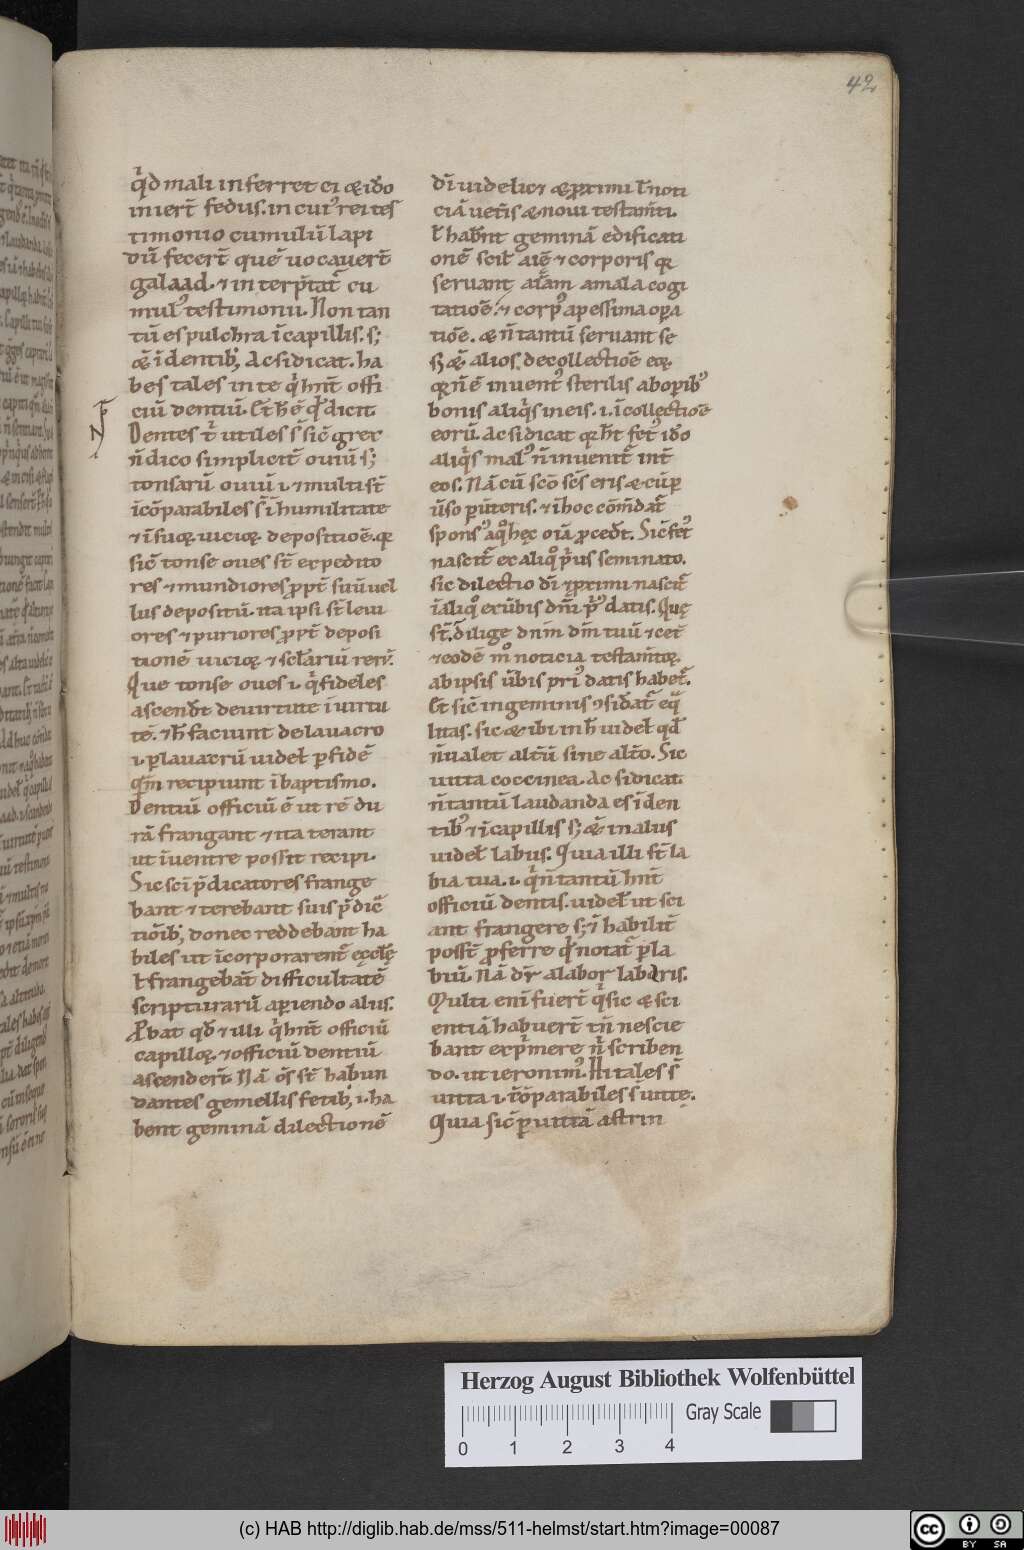 42
q̇d mali inferret ei & ido
iniert̄ fedus. in cui' rei tes
timonio cumulū lapi
dū fecert̄ quē uocauert̄
galaad. ⁊ interp̄tat̄ cu
mul' testimonii. Non tan
tū es pulchra ī capillis. s;
&̄ ī dentib; Ac si dicat. ha
bes tales in te q̇ hn̄t offi
ciū dentiū. Et h̄ ē qd̄ dicit.
Dentes t̄ utiles s̄ sic̄ grex
n̄ dico simplicit̄ ouiū s;
tonsarū ouiū .i. & multi st̄
īcōparabiles s̄ ī humilitate
⁊ ī suoꝝ uicioꝝ depositiōe. qꝛ
sic̄ tonse oues st̄ expedito
res ⁊ mundiores ꝓpt̄ suū uel
lus depositū. ita ipsi st̄ leui
ores ⁊ puriores ꝓpt̄ deposi
tionē uicioꝝ ⁊ sclāriū rerū.
Que tonse oues .i. q̇ fideles
ascend̄t de uirtute ī uirtu
tē. ⁊ h̄ faciunt de lauacro
.i. ꝑ lauacrū uidel̄ ꝑ fidē
qm̄ recipiunt ī baptismo.
Dentiū officiū ē ut rē du
rā frangant ⁊ ita terant
ut ī uentre poss̄it recipi.
Sic sc̄i p̄dicatores frange
bant ⁊ terebant suis p̄dic̄
tiōib; donec reddebant ha
biles ut īcorporarent̄ ęcclę
l̄ frangebāt difficultatē
scripturarū aꝑiendo aliis.
capilloꝝ. ⁊ officiū dentiū
ascendert̄. Nā om̄s st̄ habun
dantes gemellis fetib; .i. ha
bent geminā dilectionē
dī uidelic& & ꝓximi l̄ noti
ciā uet̄is & noui testam̄ti.
l̄ hab̄nt geminā edificati
onē scil̄ aīe ⁊ corporis qꝛ
seruant aīam a mala cogi
tatiōe. ⁊ corp' a pessima oꝑa
tiōe. & n̄ tantū seruant se
s; &̄ alios. de collectiōe eoꝝ
qꝛ n̄ ē inuent' sterilis ab oꝑib'
bonis aliq̇s in eis. .i. ī collectiōe
eorū. Ac si dicat qꝛ h̄t fet' ido
aliq̇s mal' n̄ inuenit̄ int̄
eos. Nā cū sc̄o sc̄s eris & cū ꝑ
u̇so ꝑuteris. ⁊ ī hoc cōm̄dat̄
spons' a quo hęc oīa ꝓced̄t. Sic̄ fet'
nascit̄ ex aliq° p̄us seminato.
sic dilectio dī ⁊ ꝓximi nascit̄
ī aliq° ex u̇bis dn̄i p̄' datis. Quę
st̄. dilige dn̄m dm̄ tuū ⁊ cet̄
⁊ eodē m° noticia testam̄toꝝ.
ab ipsis u̇bis pri' datis habet̄.
Et sic̄ in geminis ꝯsid̄at̄ eq̄
litas. sic & ibi in h̄ uidel̄ qd̄
n̄ ualet alt̄ū sine alt̄o. Sic
uitta coccinea. Ac si dicat.
n̄ tantū laudanda es ī den
tib' ⁊ ī capillis s; &̄ in aliis
uidel̄ labiis. Quia illi st̄ la
bia tua .i. q̇ n̄ tantū hn̄t
officiū dentis. uidel̄ ut sci
ant frangere s; ⁊ habilit̄
posst̄ ꝓferre qd̄ notat̄ ꝑ la
biū. Nā dr̄ a labor laboris.
Multi eni fuert̄ q̇ sic & sci
entiā habuert̄ tn̄ nescie
bant exp̄mere n̄ scriben
do. ut ieronim'. Hi tales s̄
uitta .i. cōparabiles s̄ uittę.
Quia sic̄ ꝑ uittā astrin
Herzog August Bibliothek Wolfenbüttel
Gray Scale
0 1 2 3 4
(c) HAB http://diglib.hab.de/mss/511-helmst/start.htm?image=00087
cc BY SA